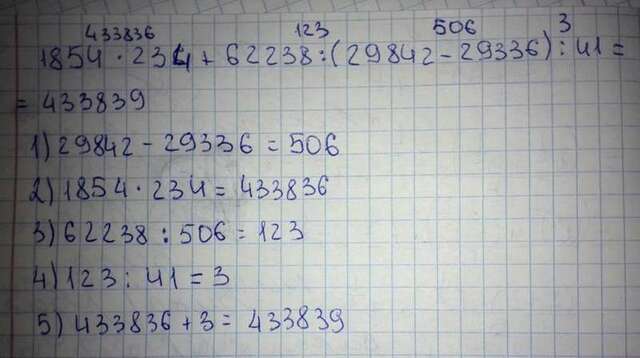 433836 123 506 3
1854 · 234 + 62238 : (29842 - 29336) : 41 =
= 433839
1) 29842 - 29336 = 506
2) 1854 · 234 = 433836
3) 62238 : 506 = 123
4) 123 : 41 = 3
5) 433836 + 3 = 433839